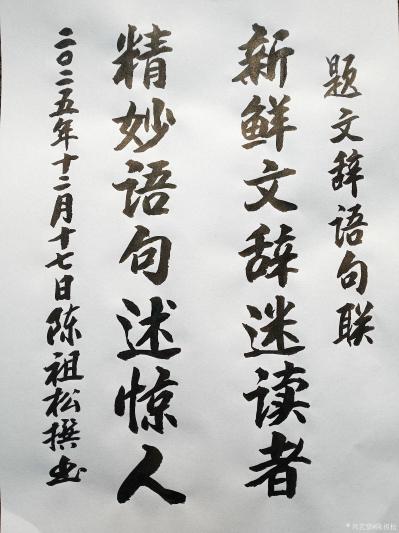 题文辞语句联
新鲜文辞迷读者
精妙语句述惊人
二〇二五年十二月十七日陈祖松撰书